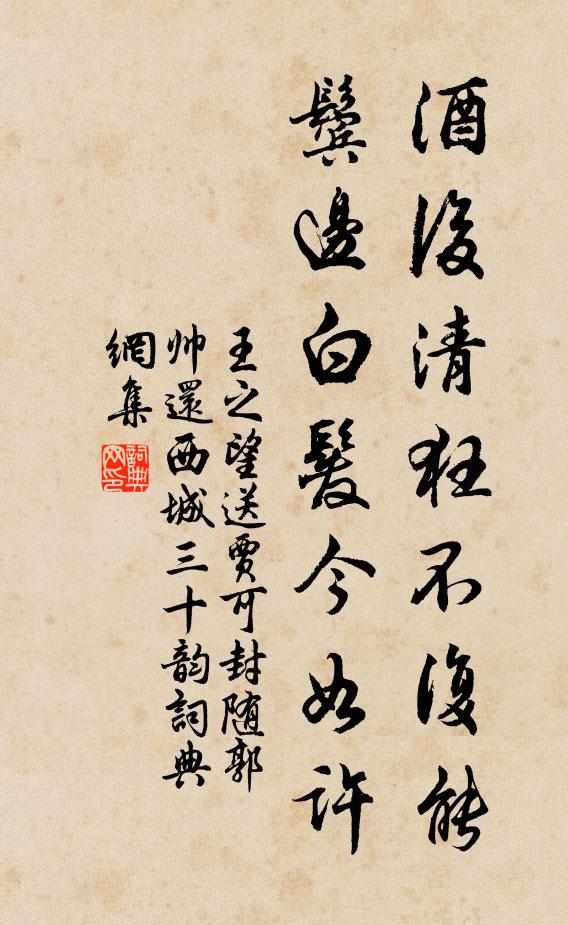 酒後清狂不復能
鬓邊白髮今如許
王之望送賈可封随郭
帅還西城三十韵詞典
網集
詞典
网印